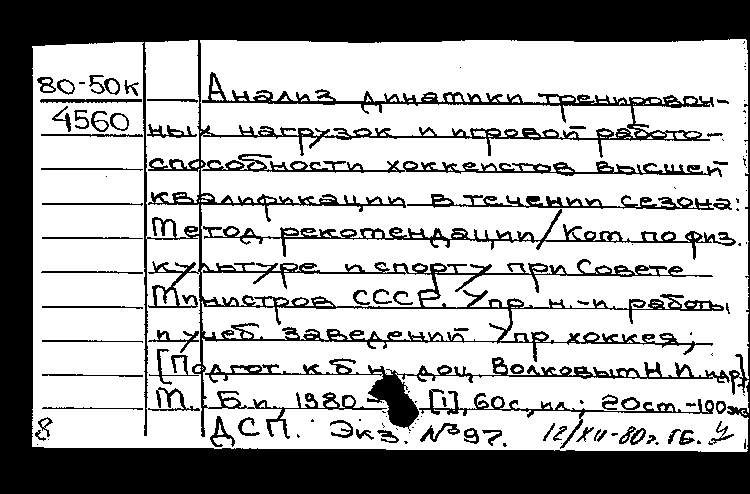 80-50к
4560
Анализ динамики тренировоч-
ных нагрузок и игровой работо-
способности хоккеистов высшей
квалификации в течении сезона:
Метод. рекомендации/Ком. по физ.
культуре и спорту при Совете
Министров СССР. Упр. н.-и. работы
и учеб. заведений. Упр. хоккея;
[Подгот. к.б.н., доц. Волковым Н.И. и др.]
М.: Б.и., 1980.- [1], 60с., ил.; 20см. -100экз
8 ДСП. Экз. №97. 12/XII-80г. ГБ.